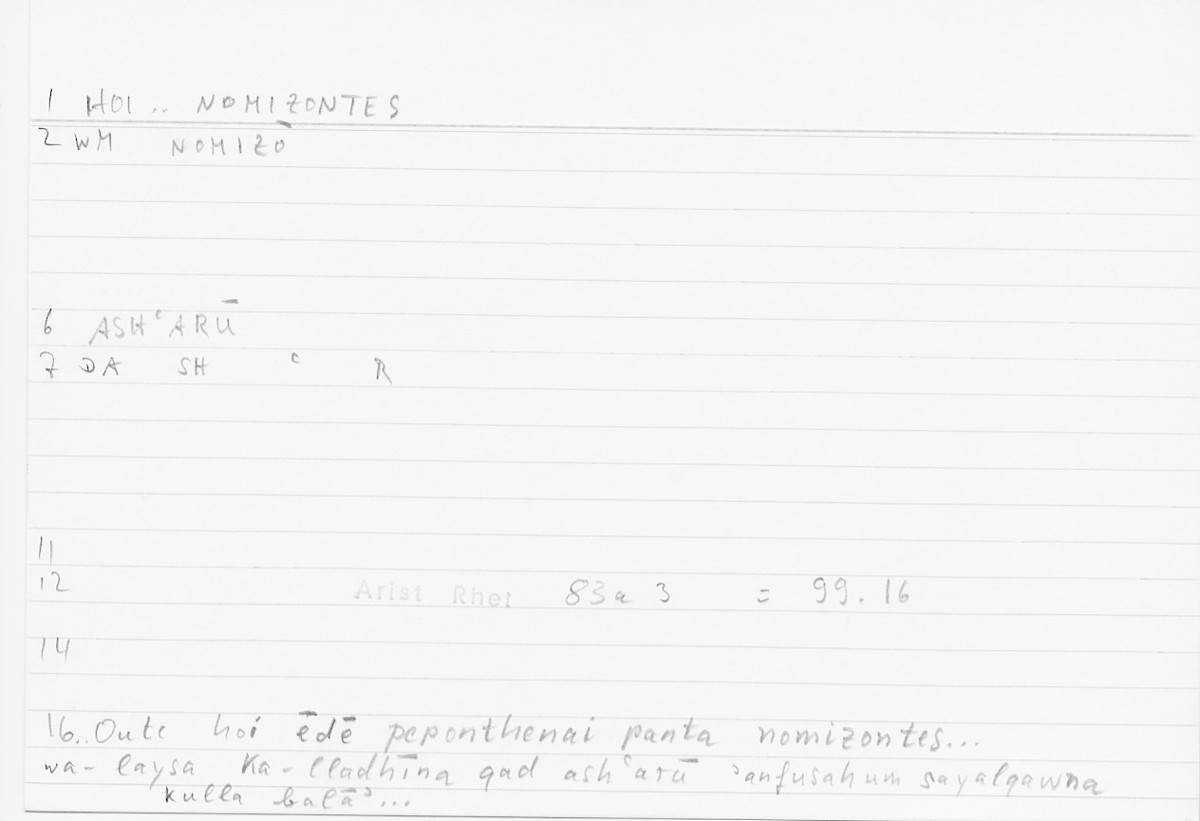 1 HOI .. NOMIZONTES
2 WM NOMIZŌ
6 ASHʿARŪ
7 DA SH ʿ R
11
12 Arist Rhet 83a 3 = 99.16
14
16.. Oute hoi ēdē peponthenai panta nomizontes...
wa-laysa ka-lladhīna qad ashʿarū ʾanfusahum sayalqawna
kulla balāʾ...